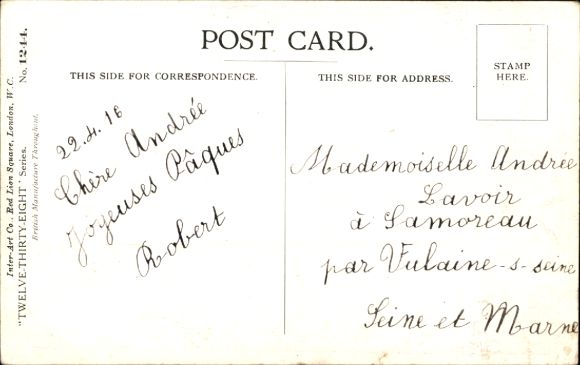 POST CARD.
THIS SIDE FOR CORRESPONDENCE.
THIS SIDE FOR ADDRESS.
STAMP
HERE.
22.4.16
Chère Andrée
Joyeuses Pâques
Robert
Mademoiselle Andrée
Lavoir
à Samoreau
par Vulaine-s-seine
Seine et Marne
Inter-Art Co., Red Lion Square, London, W.C.
"TWELVE-THIRTY-EIGHT" Series. No. 1244.
British Manufacture Throughout.